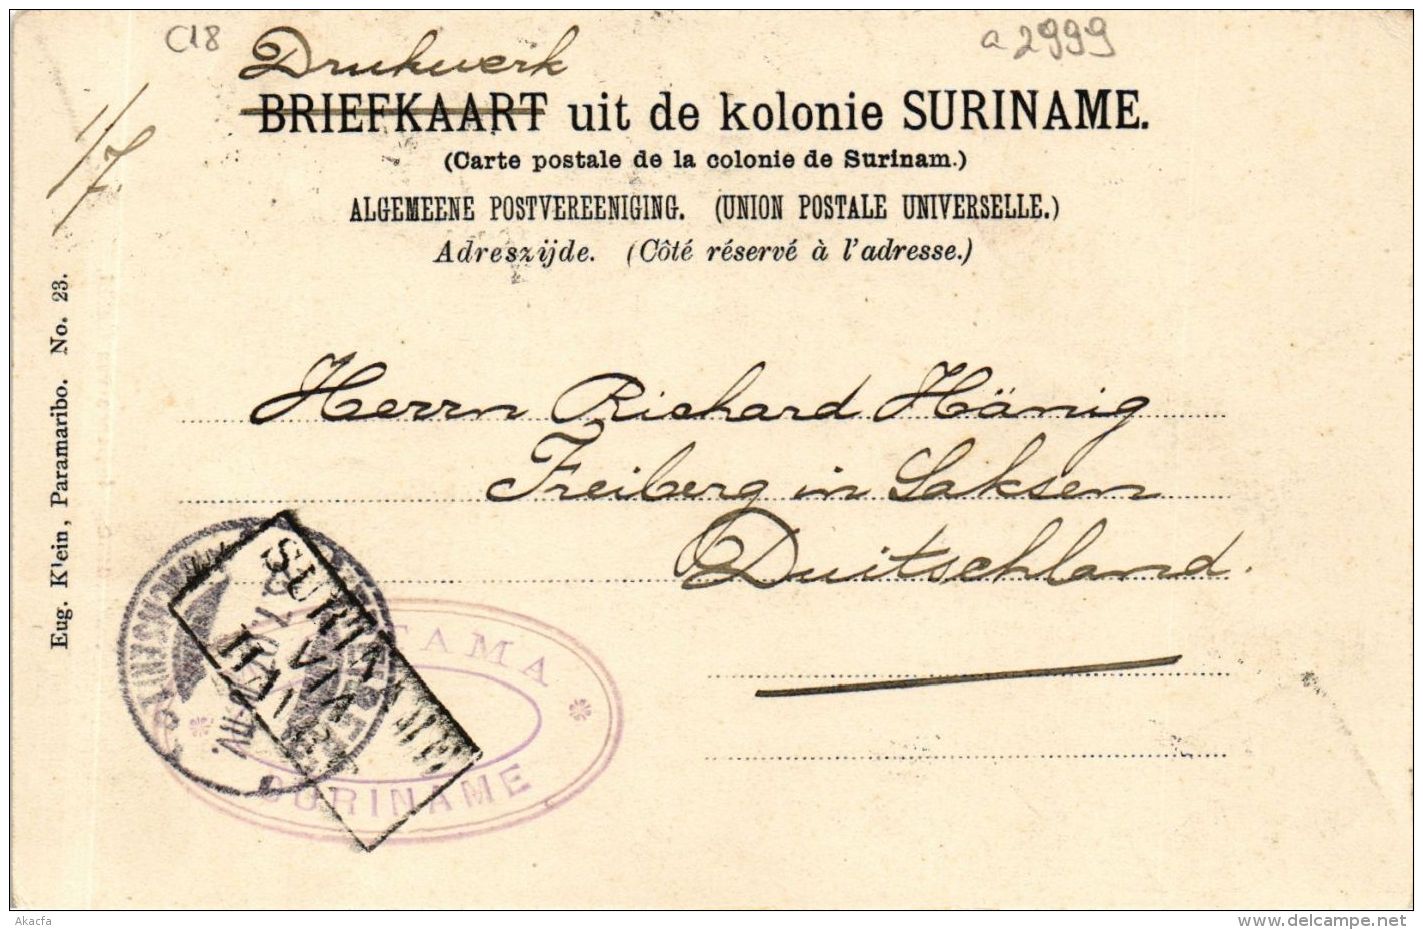 C18
a 2999
Drukwerk
BRIEFKAART uit de kolonie SURINAME.
(Carte postale de la colonie de Surinam.)
ALGEMEENE POSTVEREENIGING. (UNION POSTALE UNIVERSELLE.)
Adreszijde. (Côté réservé à l'adresse.)
1/7.
Eug. Klein, Paramaribo. No. 23.
Herrn Richard Hänig
Freiberg in Saksen
Duitschland.
SURINAME
VIA
HAVRE
SURINAME
Akacfa
delcampe.net